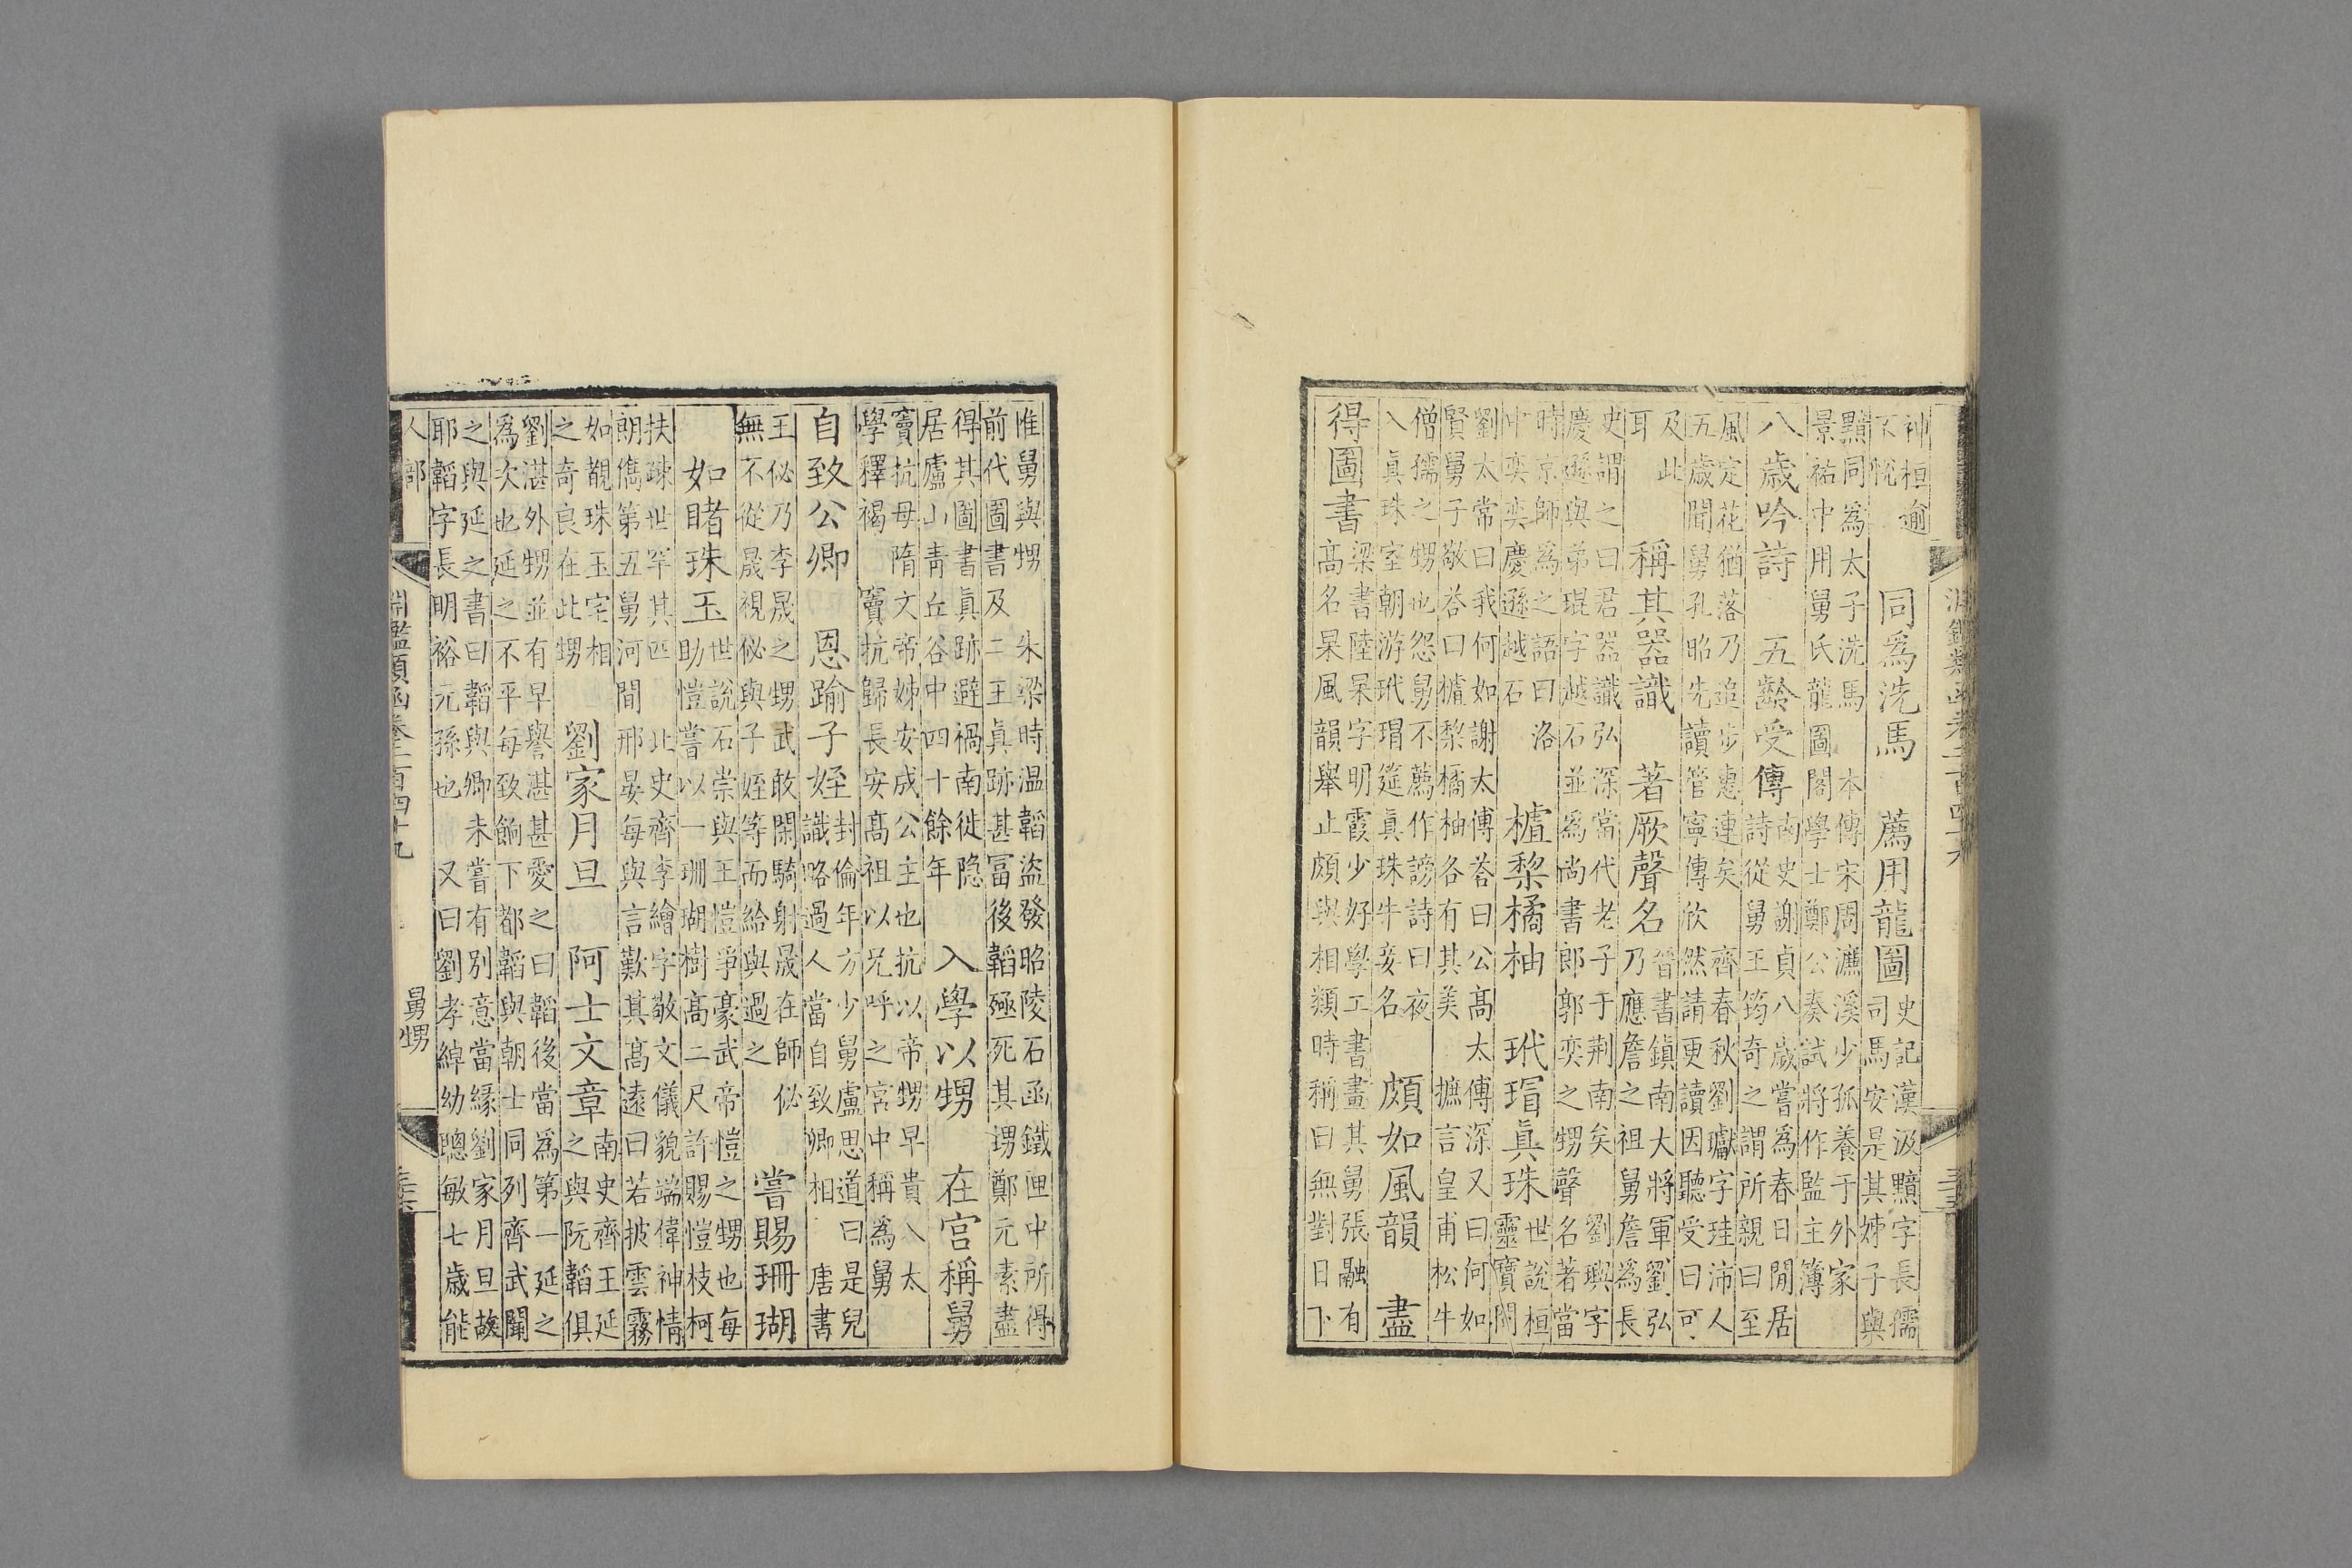 淵鑑類函卷二百四十九
神桓逾
不悅
同爲洗馬　薦用龍圖
史記漢汲黯字長孺
司馬安是其姊子與
黯同為太子洗馬　本傳宋周濂溪少孤養于外家
景祐中用舅氏龍圖閣學士鄭公奏試將作監主簿
八歲吟詩　五齡受傳
南史謝貞八歲嘗為春日閒居
詩從舅王筠奇之謂所親曰至
風定花猶落乃追步惠連矣　齊春秋劉瓛字珪沛人
五歲聞舅孔昭先讀管寧傳欣然請更讀因聽受曰可
及此
耳
稱其器識　著厥聲名
晉書鎮南大將軍劉弘
乃應詹之祖舅詹為長
史謂之曰君器識弘深當代老子于荆南矣　劉璵字
慶遜與弟琨字越石並為尚書郎郭奕之甥聲名著當
時京師為之語曰洛
中奕奕慶遜越石
樝棃橘柚　玳瑁真珠
世說桓
靈寶問
劉太常曰我何如謝太傅荅曰公高太傅深又曰何如
賢舅子敬荅曰樝棃橘柚各有其美　摭言皇甫松牛
僧孺之甥也怨舅不薦作謗詩曰夜
入真珠室朝游玳瑁筵真珠牛妾名
頗如風韻　盡
得圖書
梁書陸杲字明霞少好學工書畫其舅張融有
高名杲風韻舉止頗與相類時稱曰無對日下
惟舅與甥　朱梁時温韜盜發昭陵石函鐵匣中所得
前代圖書及二王真跡甚富後韜殛死其甥鄭元素盡
得其圖書真跡避禍南徙隐
居廬山青丘谷中四十餘年
入學以甥　在宫稱舅
竇抗母隋文帝姊安成公主也抗以帝甥早貴入太
學釋褐　竇抗歸長安高祖以兄呼之宮中稱為舅
自致公卿　恩踰子姪
封倫年方少舅盧思道曰是兒
識略過人當自致卿相　唐書
王佖乃李晟之甥武敢閑騎射晟在師佖
無不從晟視佖與子姪等而給與過之
嘗賜珊瑚
如睹珠玉
世說石崇與王愷爭豪武帝愷之甥也每
助愷嘗以一珊瑚樹高二尺許賜愷枝柯
扶疎世罕其匹　北史齊李繪字敬文儀貌端偉神情
朗儁第五舅河間邢晏每與言歎其高遠曰若披雲霧
如覩珠玉宅相
之奇良在此甥
劉家月旦　阿士文章
南史齊王延
之與阮韜俱
劉湛外甥並有早譽湛甚愛之曰韜後當為第一延之
為次也延之不平每致餉下都韜與朝士同列齊武聞
之與延之書曰韜與卿未嘗有別意當緣劉家月旦故
耶韜字長明裕元孫也　又曰劉孝綽幼聰敏七歲能
人部　淵鑑類函卷二百四十九　舅甥